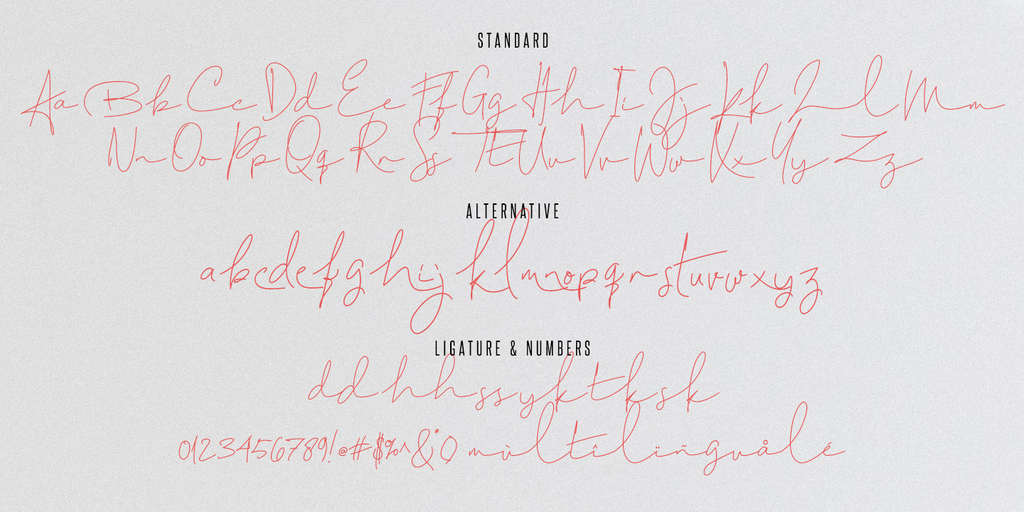 STANDARD
Aa Bb Cc Dd Ee Ff Gg Hh Ii Jj Kk L l Mm
Nn Oo Pp Qq Rr Ss Tt Uu Vv Ww Xx Yy Zz
ALTERNATIVE
abcdefghijklmnopqrstuvwxyz
LIGATURE & NUMBERS
dd hh ss yk tk sk
0123456789!@#$%^&*() mùltîlïñgüålé